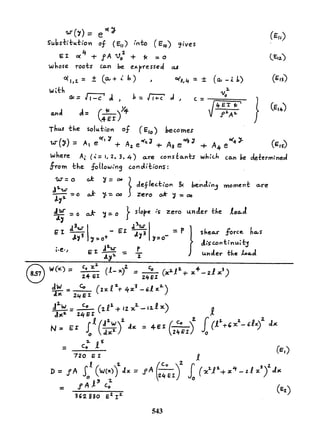 w(y) = e^{αy} (E11)
Substitution of (E11) into (E10) gives
EI α^4 + ρA v_0^2 + k = 0 (E12)
whose roots can be expressed as
α_{1,2} = ± (a + i b), α_{3,4} = ± (a - i b) (E13)
with a = √(1-c) d, b = √(1+c) d, c = v_0^2 / √(4EIk / ρ²A²)
and d = (k/4EI)^{1/4} (E14)
Thus the solution of (E10) becomes
w(y) = A_1 e^{α_1 y} + A_2 e^{α_2 y} + A_3 e^{α_3 y} + A_4 e^{α_4 y} (E15)
where A_i (i = 1, 2, 3, 4) are constants which can be determined
from the following conditions:
w = 0 at y = ∞
d²w/dy² = 0 at y = ∞ } deflection & bending moment are zero at y = ∞
dw/dy = 0 at y = 0 } slope is zero under the load
EI d³w/dy³ |_{y=0+} - EI d³w/dy³ |_{y=0-} = P
i.e., EI d³w/dy³ = P/2 } shear force has discontinuity under the load
8.57 W(x) = c_0 x²/24EI (l-x)² = c_0/24EI (x²l² + x⁴ - 2lx³)
dW/dx = c_0/24EI (2xl² + 4x³ - 6lx²)
d²W/dx² = c_0/24EI (2l² + 12x² - 12lx)
N = EI ∫_0^l (d²W/dx²)² dx = 4EI (c_0/24EI)² ∫_0^l (l² + 6x² - 6lx)² dx
= c_0² l⁵ / 720 EI (E1)
D = ρA ∫_0^l (W(x))² dx = ρA (c_0/24EI)² ∫_0^l (x²l² + x⁴ - 2lx³)² dx
= ρA l⁹ c_0² / 362880 E²I² (E2)
543